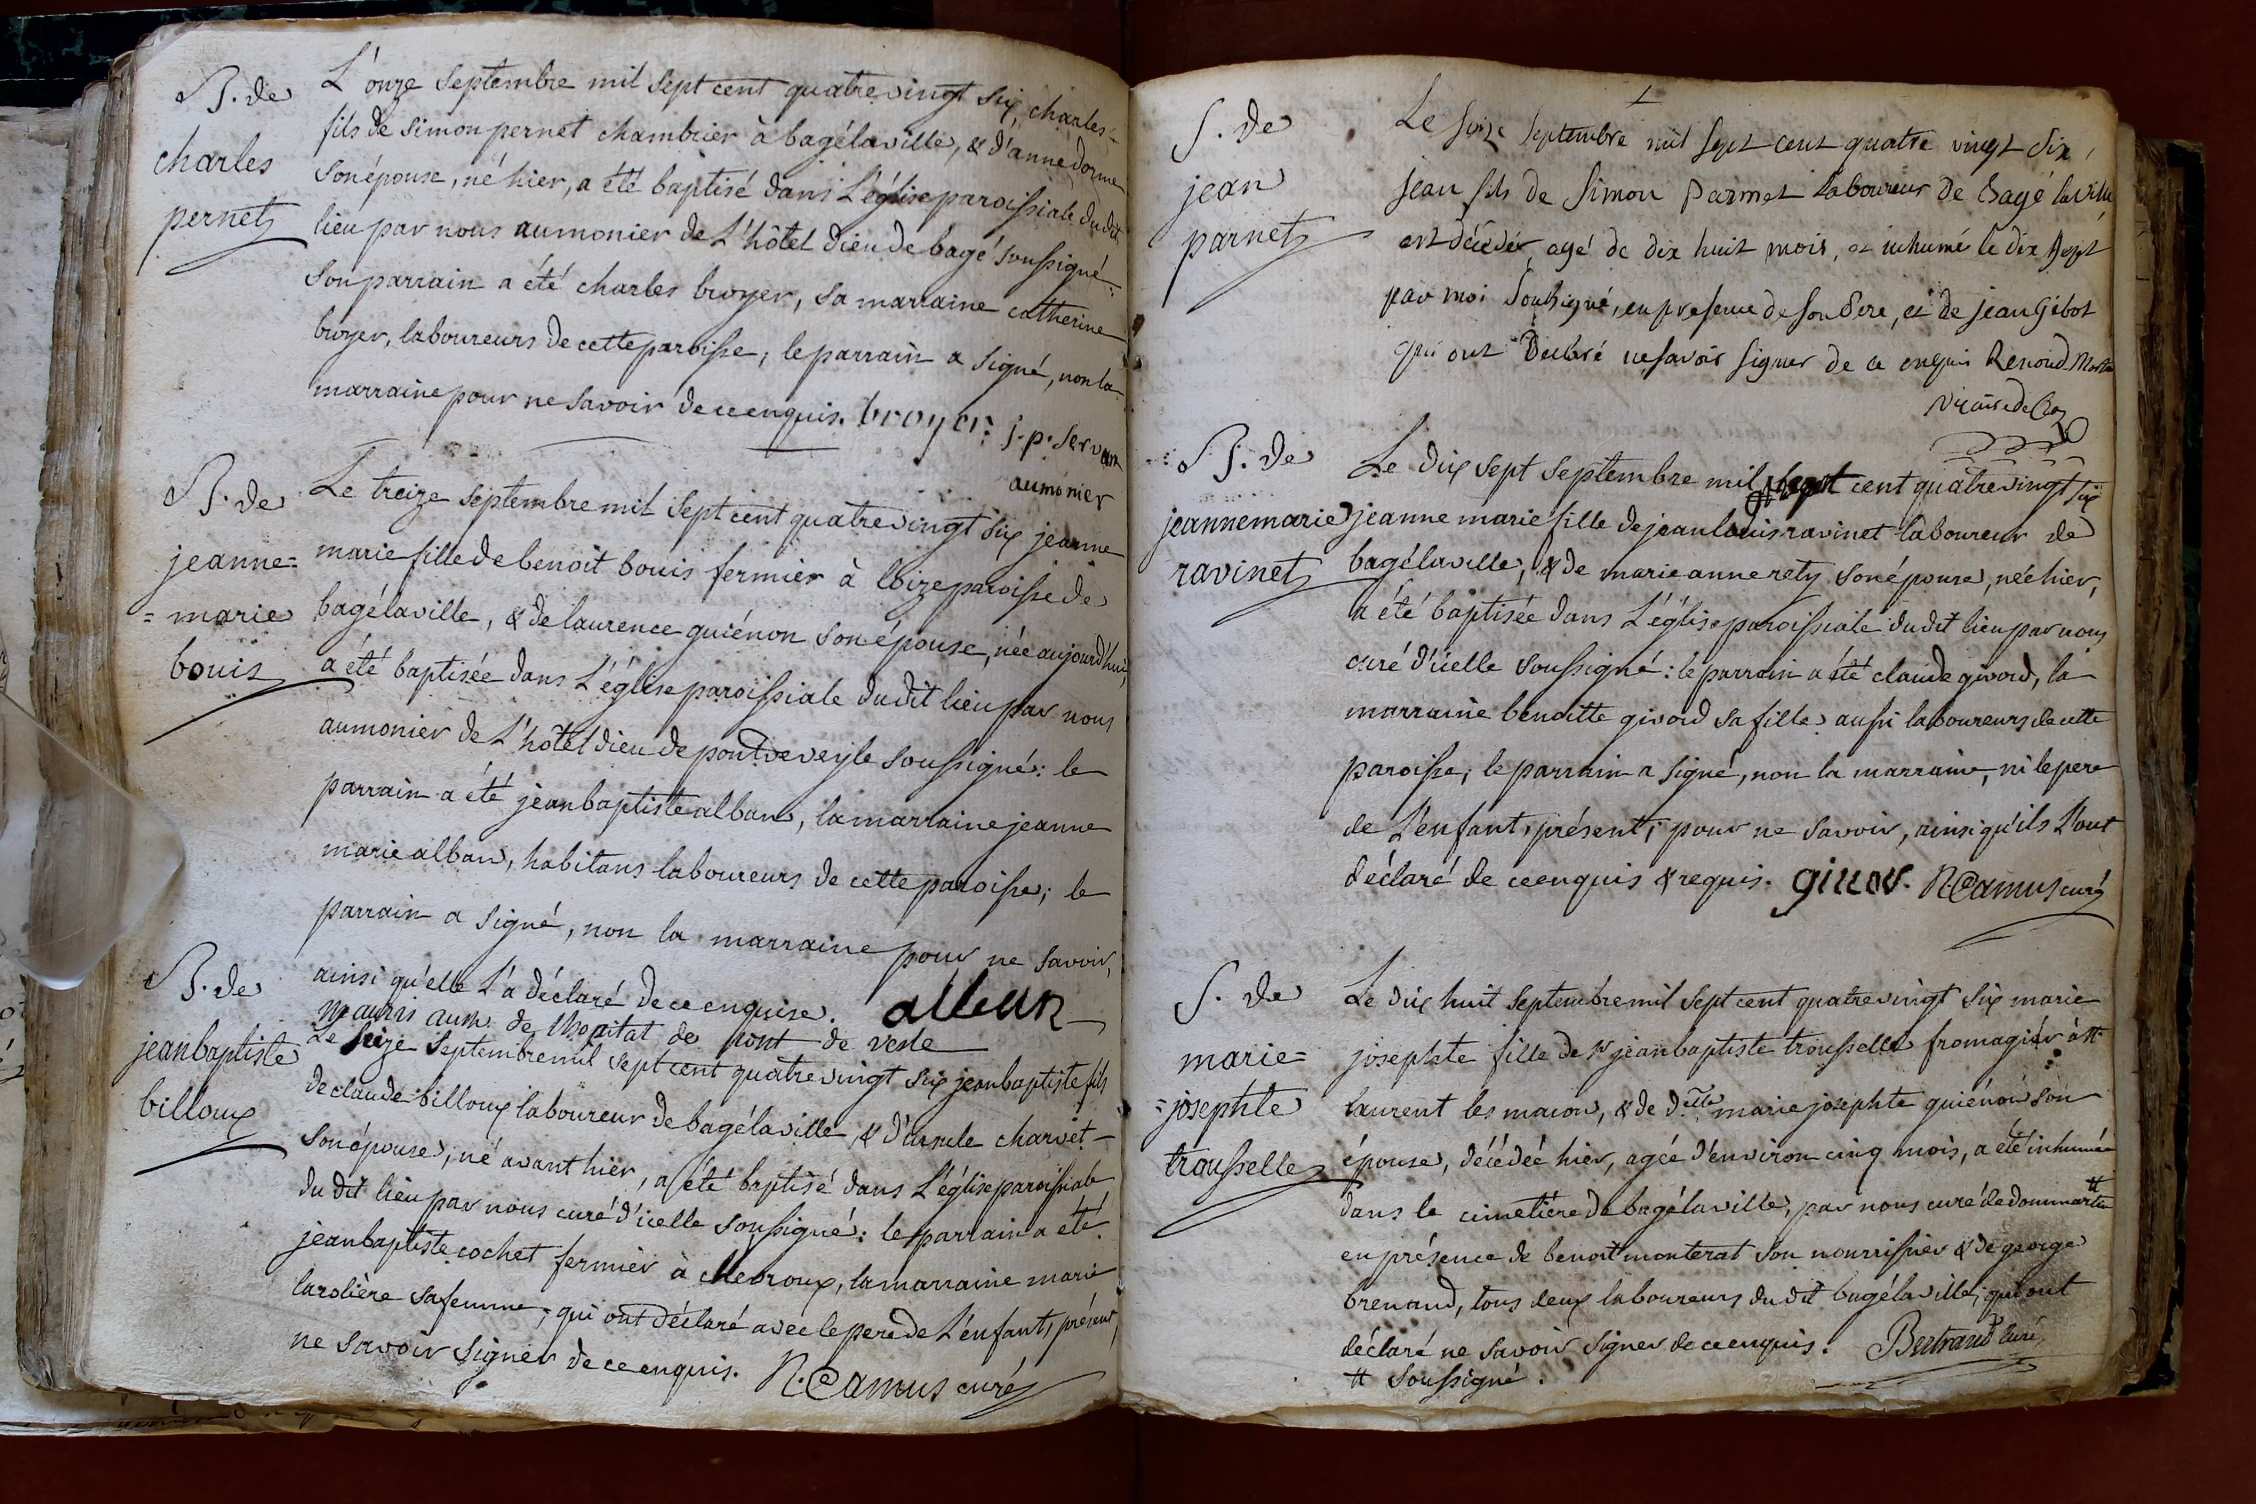 B. de
charles
pernet
L'onze septembre mil sept cent quatre vingt six, charles =
fils de simon pernet chambrier à bagé la ville, & d'anne dorme
son épouse, né hier, a été baptisé dans L'église paroissiale du dit
lieu par nous aumonier de L'hôtel dieu de bagé soussigné =
son parrain a été charles broyer, sa marraine catherine
broyer, laboureurs de cette paroisse; le parrain a signé, non la
marraine pour ne savoir de ce enquis. broyer j. p. servan
aumonier
B. de
jeanne =
= marie
bouis
Le treize septembre mil sept cent quatre vingt six jeanne
marie fille de benoit bouis fermier à loize paroisse de
bagé la ville, & de laurence guiénon son épouse, née aujourd'hui,
a été baptisée dans L'église paroissiale du dit lieu par nous
aumonier de L'hôtel dieu de pontdeveyle soussigné: le
parrain a été jean baptiste alban, la marraine jeanne
marie alban, habitans laboureurs de cette paroisse; le
parrain a signé, non la marraine pour ne savoir,
ainsi qu'elle L'a déclaré de ce enquise. alban
aum. de lhopital de pont de vesle
B. de
jean baptiste
billoux
Le seize septembre mil sept cent quatre vingt six jean baptiste fils
de claude billoux laboureur de bagé la ville & d'ursule charvet
son épouse, né avant hier, a été baptisé dans L'église paroissiale
du dit lieu par nous curé d'icelle soussigné: le parrain a été
jean baptiste cochet fermier à chevroux, la marraine marie
larolière sa femme, qui ont déclaré avec le pere de L'enfant, présent,
ne savoir signer de ce enquis. N. Camus curé
S. de
jean
parnet
Le seize septembre mil sept cent quatre vingt six,
jean fils de Simon Parnet Laboureur de Bagé la ville
est décédé, agé de dix huit mois, et inhumé le dix sept
par moi soussigné, en presence de son Pere, et de jean Gibot
qui ont déclaré ne savoir signer de ce enquis Renoud
vicaire de
B. de
jeanne marie
ravinet
Le dix sept septembre mil sept cent quatre vingt six
jeanne marie fille de jean louis ravinet laboureur de
bagé la ville, & de marie anne rety son épouse, née hier,
a été baptisée dans L'église paroissiale du dit lieu par nous
curé d'icelle soussigné: le parrain a été claude givord, la
marraine benoitte givord sa fille aussi laboureurs de cette
paroisse; le parrain a signé, non la marraine, ni le pere
de L'enfant, présent, pour ne savoir, ainsi qu'ils L'ont
déclaré de ce enquis & requis. N. Camus curé
S. de
marie =
= josephte
trousselle
Le dix huit septembre mil sept cent quatre vingt six marie
josephte fille de sr jean baptiste trousselle fromagier à st
laurent les macon, & de d.elle marie josephte guiénon son
épouse, décédée hier, agée d'environ cinq mois, a été inhumée
dans le cimetière de bagé la ville, par nous curé de dommartin #
en présence de benoit monterat son nourrissier & de george
brenand, tous deux laboureurs du dit bagé la ville, qui ont
déclaré ne savoir signer de ce enquis. Bertrand curé,
# soussigné.